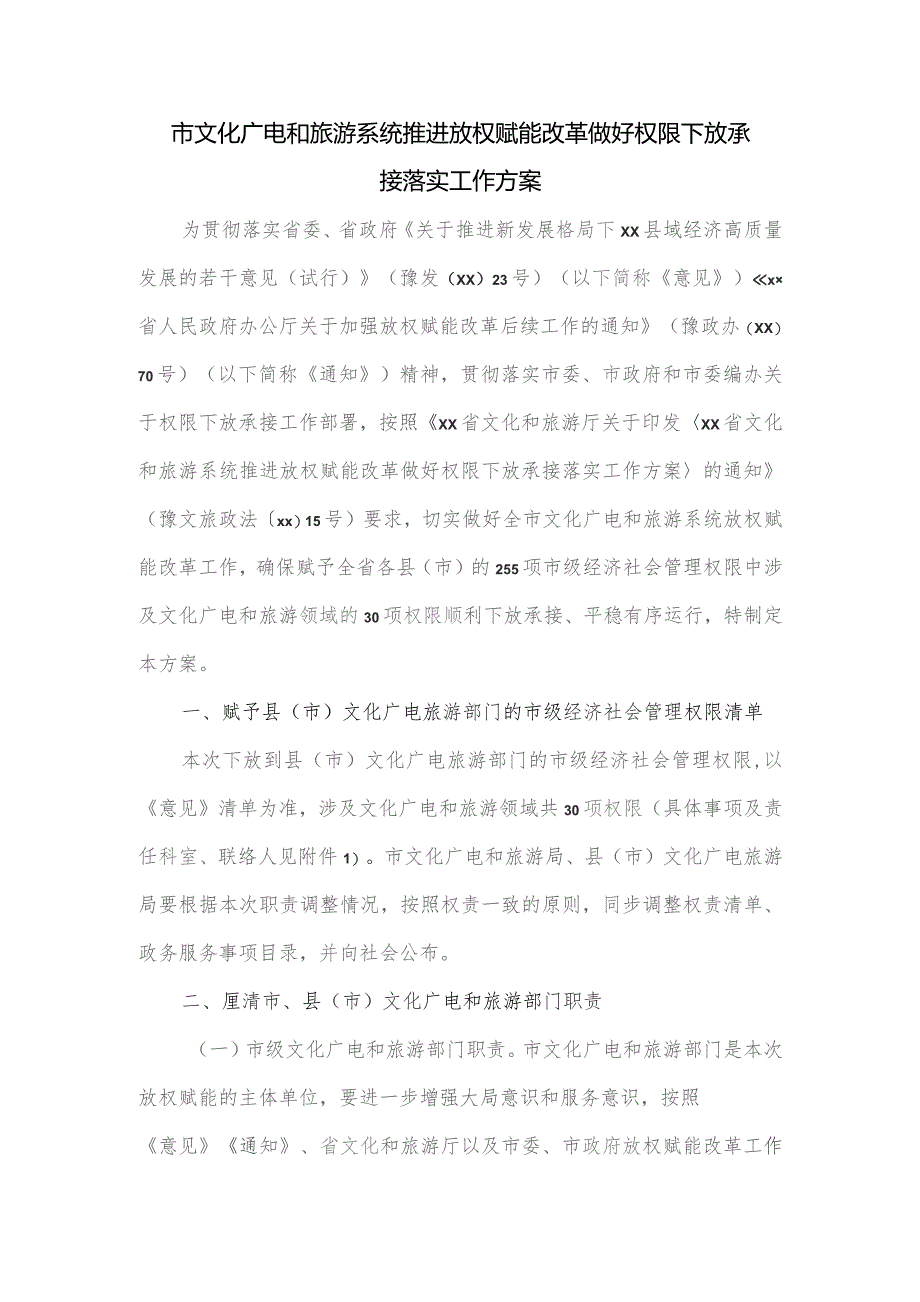 市文化广电和旅游系统推进放权赋能改革做好权限下放承
接落实工作方案
为贯彻落实省委、省政府《关于推进新发展格局下xx县域经济高质量
发展的若干意见（试行）》（豫发（XX）23号）（以下简称《意见》）≪x×
省人民政府办公厅关于加强放权赋能改革后续工作的通知》（豫政办（XX）
70号）（以下简称《通知》）精神，贯彻落实市委、市政府和市委编办关
于权限下放承接工作部署，按照《xx省文化和旅游厅关于印发〈xx省文化
和旅游系统推进放权赋能改革做好权限下放承接落实工作方案〉的通知》
（豫文旅政法〔xx）15号）要求，切实做好全市文化广电和旅游系统放权赋
能改革工作，确保赋予全省各县（市）的255项市级经济社会管理权限中涉
及文化广电和旅游领域的30项权限顺利下放承接、平稳有序运行，特制定
本方案。
一、赋予县（市）文化广电旅游部门的市级经济社会管理权限清单
本次下放到县（市）文化广电旅游部门的市级经济社会管理权限,以
《意见》清单为准，涉及文化广电和旅游领域共30项权限（具体事项及责
任科室、联络人见附件1）。市文化广电和旅游局、县（市）文化广电旅游
局要根据本次职责调整情况，按照权责一致的原则，同步调整权责清单、
政务服务事项目录，并向社会公布。
二、厘清市、县（市）文化广电和旅游部门职责
（一）市级文化广电和旅游部门职责。市文化广电和旅游部门是本次
放权赋能的主体单位，要进一步增强大局意识和服务意识，按照
《意见》《通知》、省文化和旅游厅以及市委、市政府放权赋能改革工作